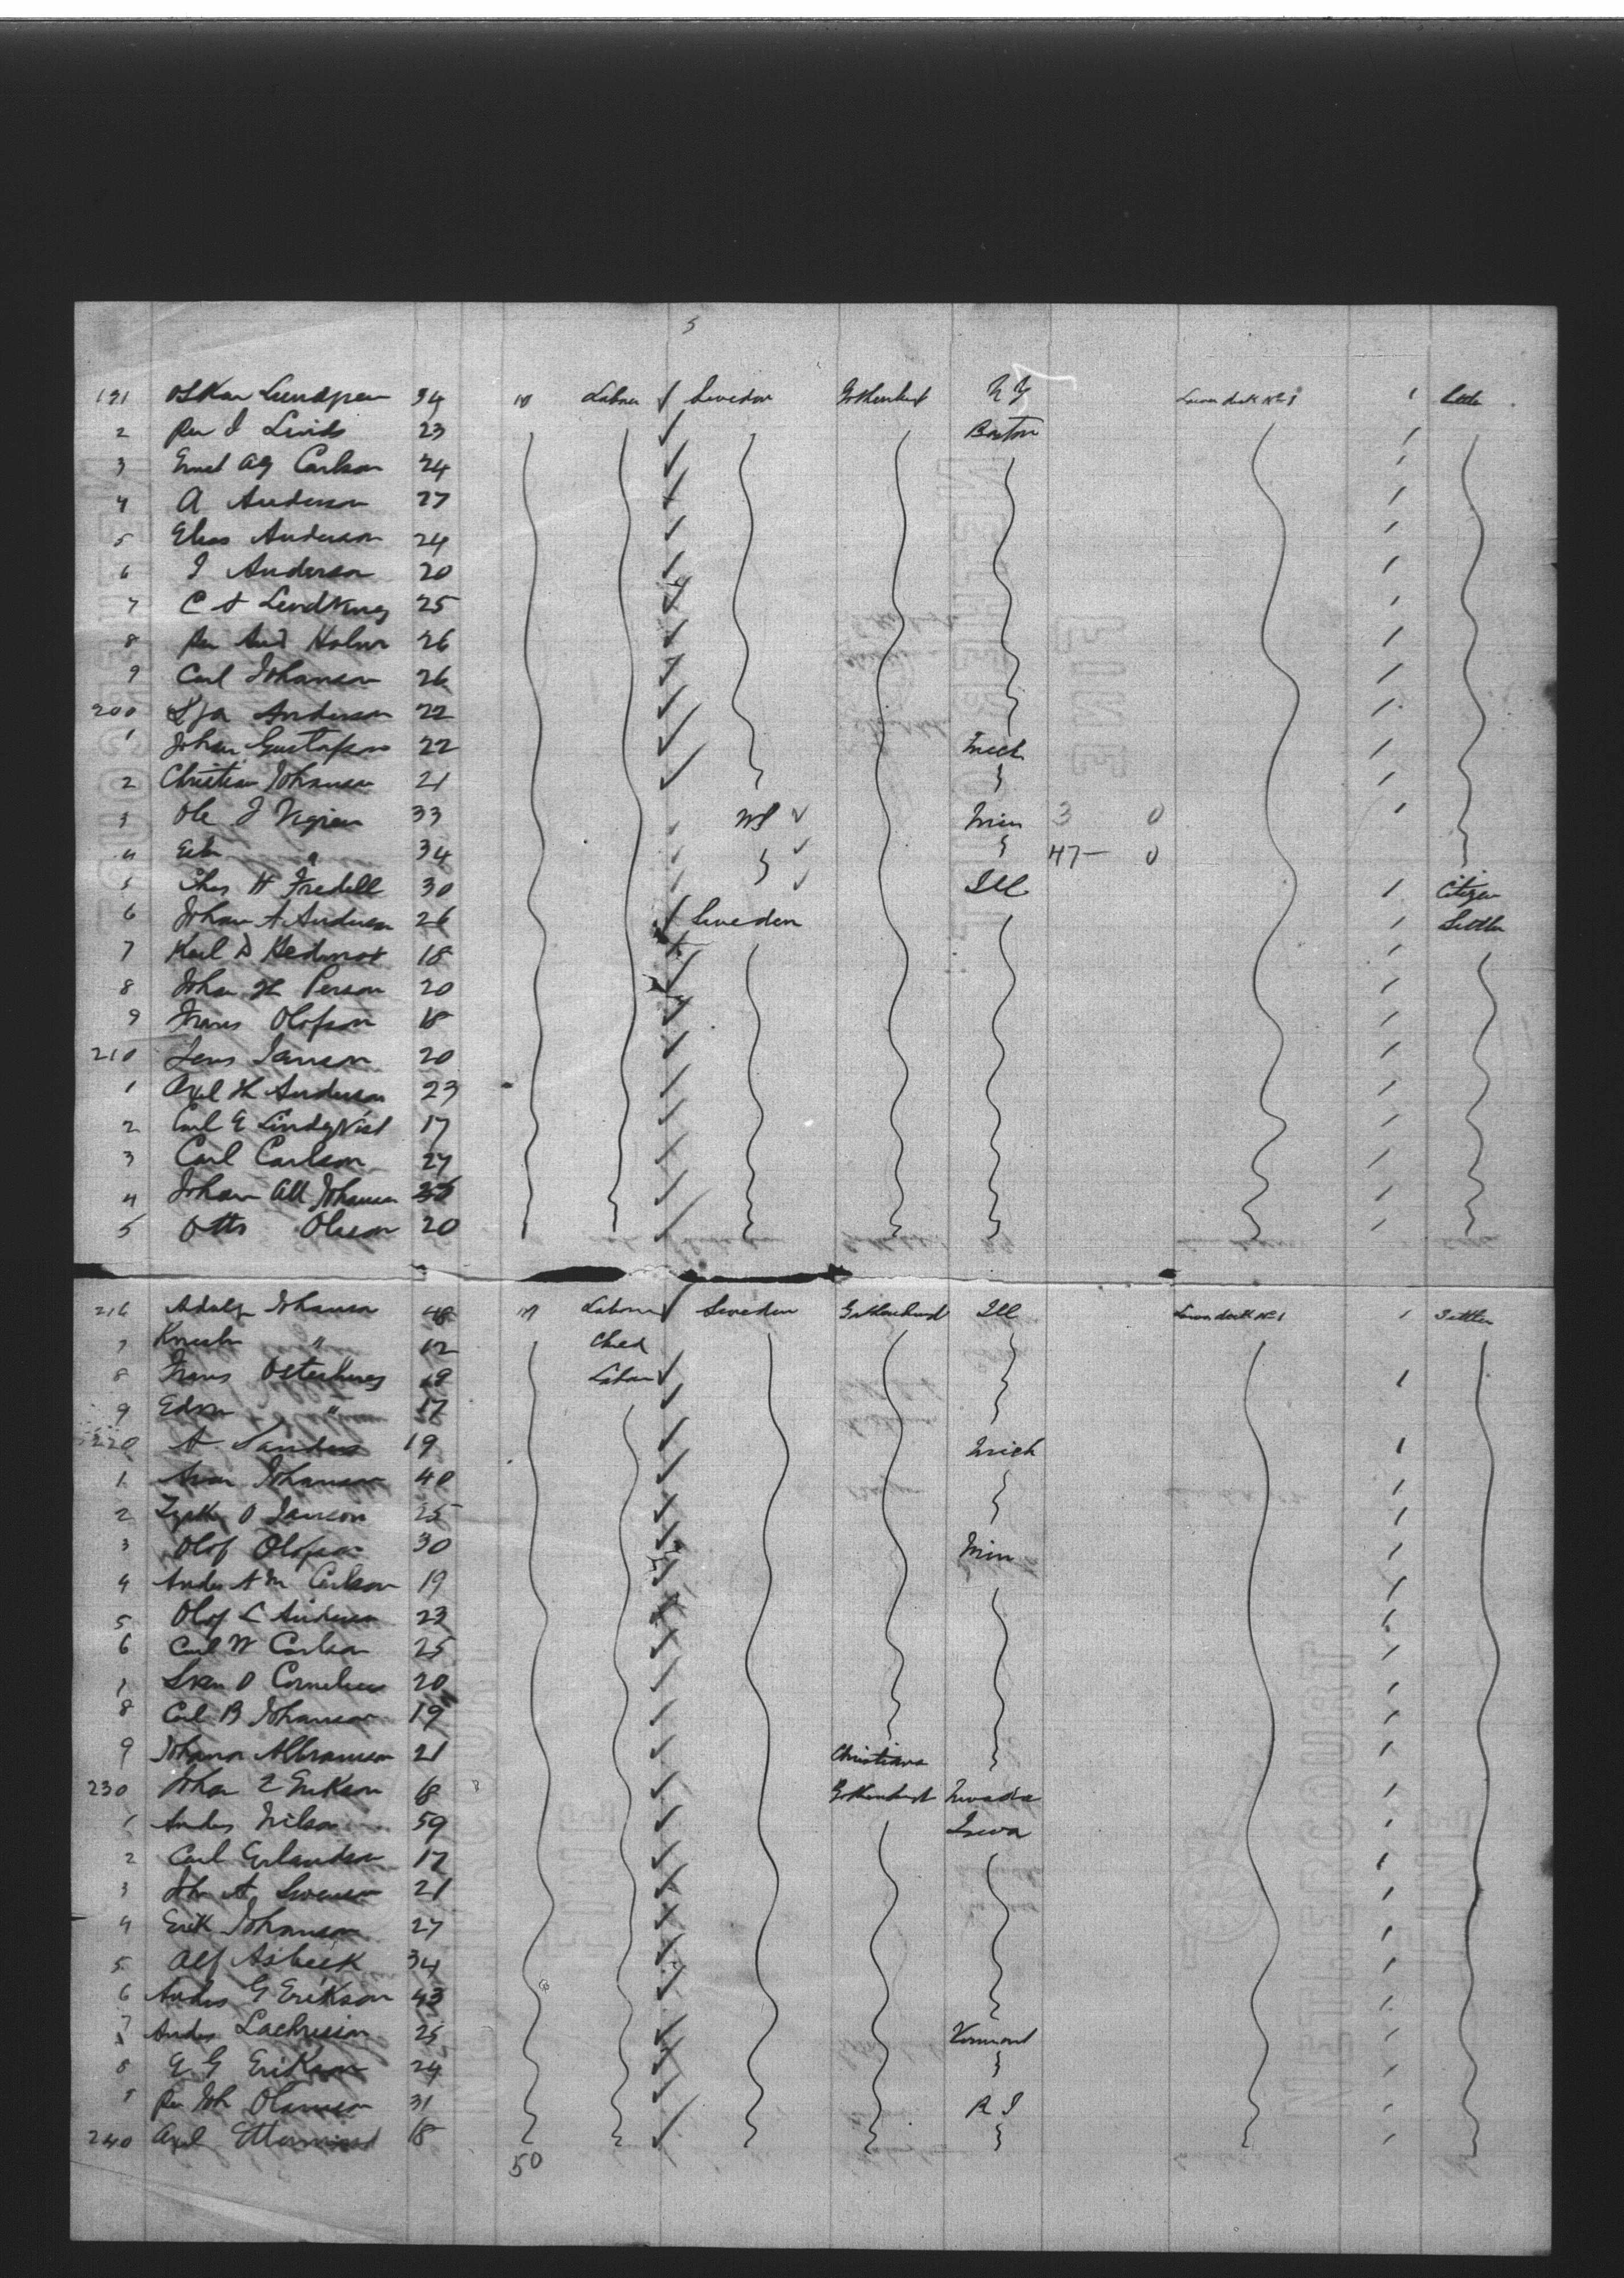 5
191 Oskar Lundgren 34 M Labour Sweden Gothenburg N Y Lower deck No 1 1 Settler
2 Per J 23 Boston 1
3 Ernst Carlson 24 1
4 A Anderson 27 1
5 Elias Anderson 24 1
6 J Anderson 20 1
7 C A 25 1
8 Per And Holm 26 1
9 Carl Johanson 26 1
200 Anderson 22 1
1 Johan Gustafson 22 Mich 1
2 Christian Johanson 21 1
3 Ole J 33 US Min 3 0 1
4 " 34 47- 0
5 Chas H Fredell 30 Ill 1 Citizen
6 Johan A Anderson 26 Sweden 1 Settler
7 Karl D 18 1
8 Johan H Person 20 1
9 Frans Olofson 18 1
210 Jens Janson 20 1
1 Axel H Anderson 23 1
2 Carl E Lindqvist 17 1
3 Carl Carlson 27 1
4 Johan Alf Johanson 1
5 Otto Olsson 20 1
216 Adolf Johanson 48 M Labour Sweden Gothenburg Ill Lower deck No 1 1 Settler
7 " 12 Child
8 Frans Osterberg 18 Labour 1
9 Edvin " 17
220 A 19 Mich 1
1 Johanson 40 1
2 O Janson 25 1
3 Olof Olofson 30 Min 1
4 Anders A M Carlson 19 1
5 Olof L Anderson 23 1
6 Carl W Carlson 25 1
7 Sven O Cornelius 20 1
8 Carl B Johanson 19 1
9 Abramson 21 Christiana 1
230 Johan E Erikson 18 Gothenburg Nevada 1
1 Anders Nilson 59 Iowa 1
2 Carl Erlandson 17 1
3 Joh A Swenson 21 1
4 Erik Johanson 27 1
5 Alf Asbeck 34 1
6 Anders G Erikson 43 1
7 Anders Lachrisson 25 Vermont 1
8 E G Erikson 24 1
9 Per Joh 31 R I 1
240 Axel 18 1
50